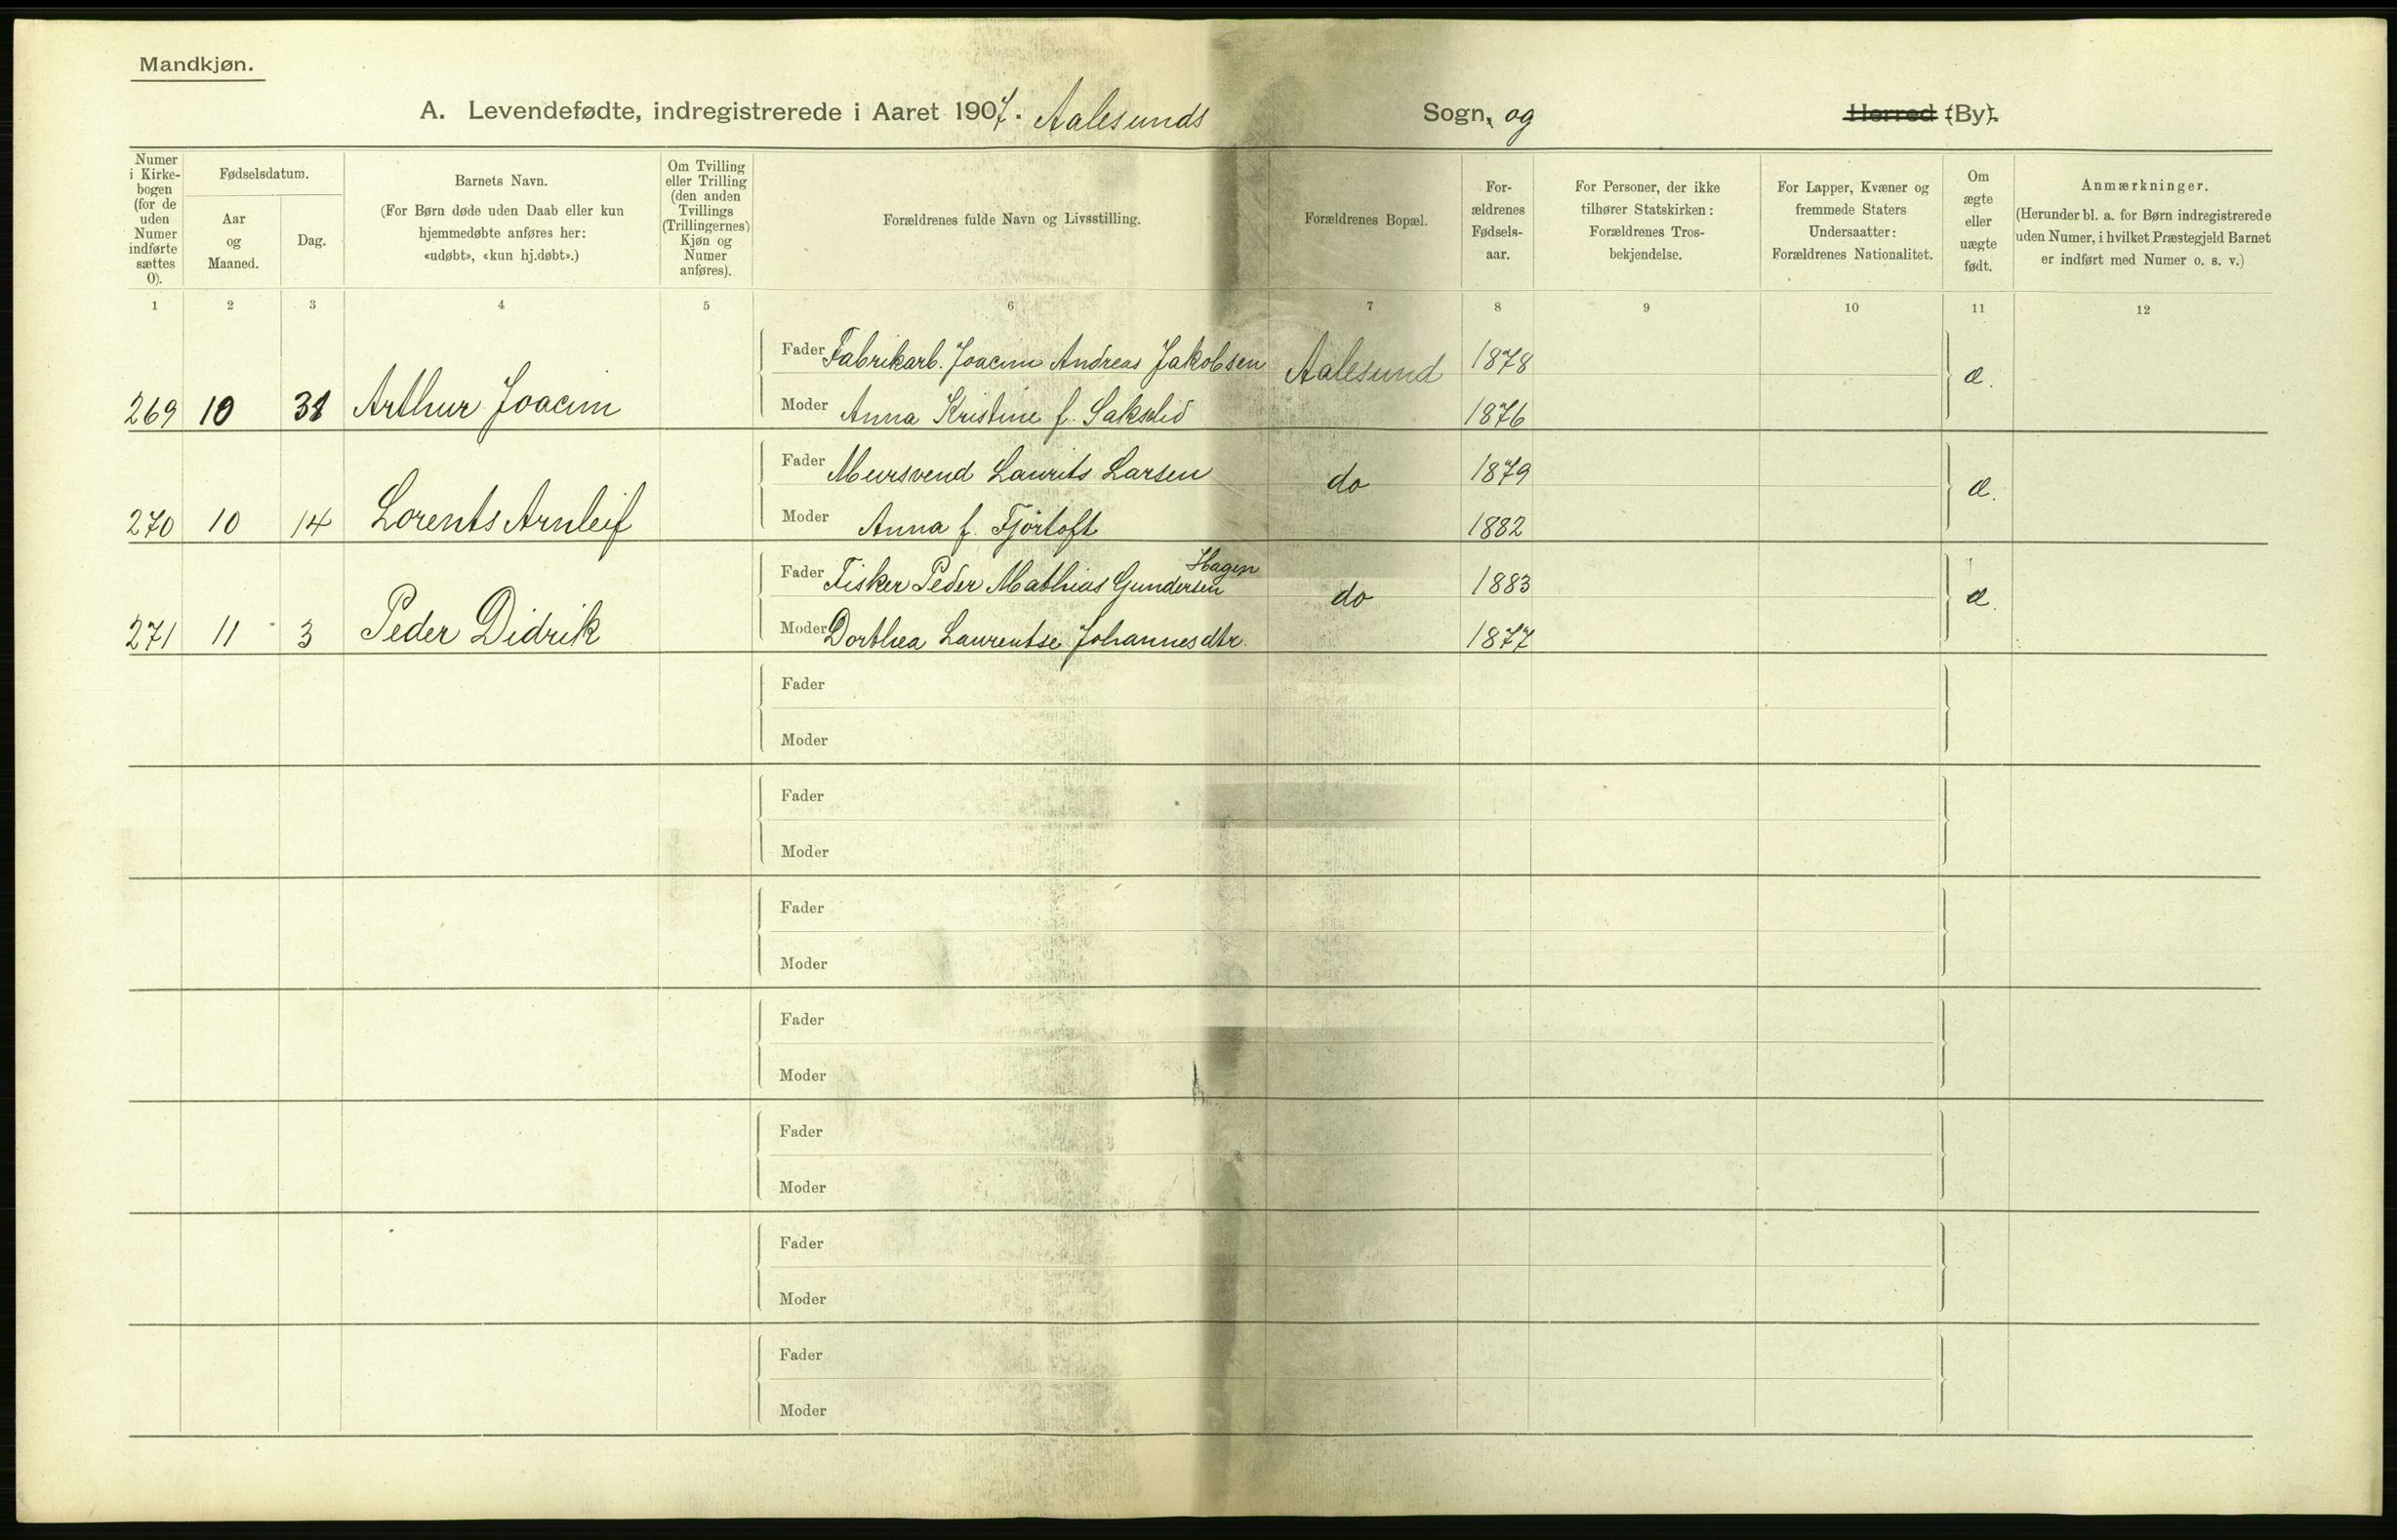 Mandkjøn.
A. Levendefødte, indregistrerede i Aaret 1907. Aalesunds Sogn, og Herred (By).
Numer i Kirkebogen (for de uden Numer indførte sættes 0).
Fødselsdatum.
Aar og Maaned.
Dag.
Barnets Navn.
(For Børn døde uden Daab eller kun hjemmedøbte anføres her: «udøbt», «kun hj.døbt».)
Om Tvilling eller Trilling (den anden Tvillings (Trillingernes) Kjøn og Numer anføres).
Forældrenes fulde Navn og Livsstilling.
Forældrenes Bopæl.
Forældrenes Fødselsaar.
For Personer, der ikke tilhører Statskirken: Forældrenes Trosbekjendelse.
For Lapper, Kvæner og fremmede Staters Undersaatter: Forældrenes Nationalitet.
Om ægte eller uægte født.
Anmærkninger.
(Herunder bl. a. for Børn indregistrerede uden Numer, i hvilket Præstegjeld Barnet er indført med Numer o. s. v.)
1 2 3 4 5 6 7 8 9 10 11 12
Fader Fabrikarb. Joacim Andreas Jakobsen Aalesund 1878 æ.
269 10 31 Arthur Joacim Moder Anna Kristine f. 1876
Fader Mursvend Laurits Larsen do 1879 æ.
270 10 14 Lorents Arnleif Moder Anna f. Fjörtoft 1882
Hagen
Fader Fisker Peder Mathias Gundersen do 1883 æ.
271 11 3 Peder Didrik Moder Dorthea Laurentse Johannesdtr. 1877
Fader
Moder
Fader
Moder
Fader
Moder
Fader
Moder
Fader
Moder
Fader
Moder
Fader
Moder